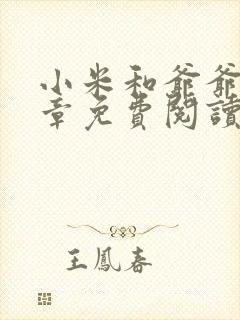 小米和爺爺
章免費閱讀
王鳳春